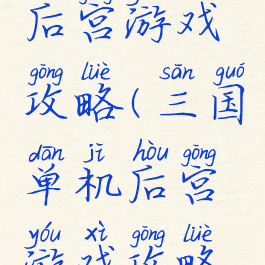 后宫游戏
gōng lüè sān guó
攻略(三国
dān jī hòu gōng
单机后宫
yóu xì gōng lüè
游戏攻略